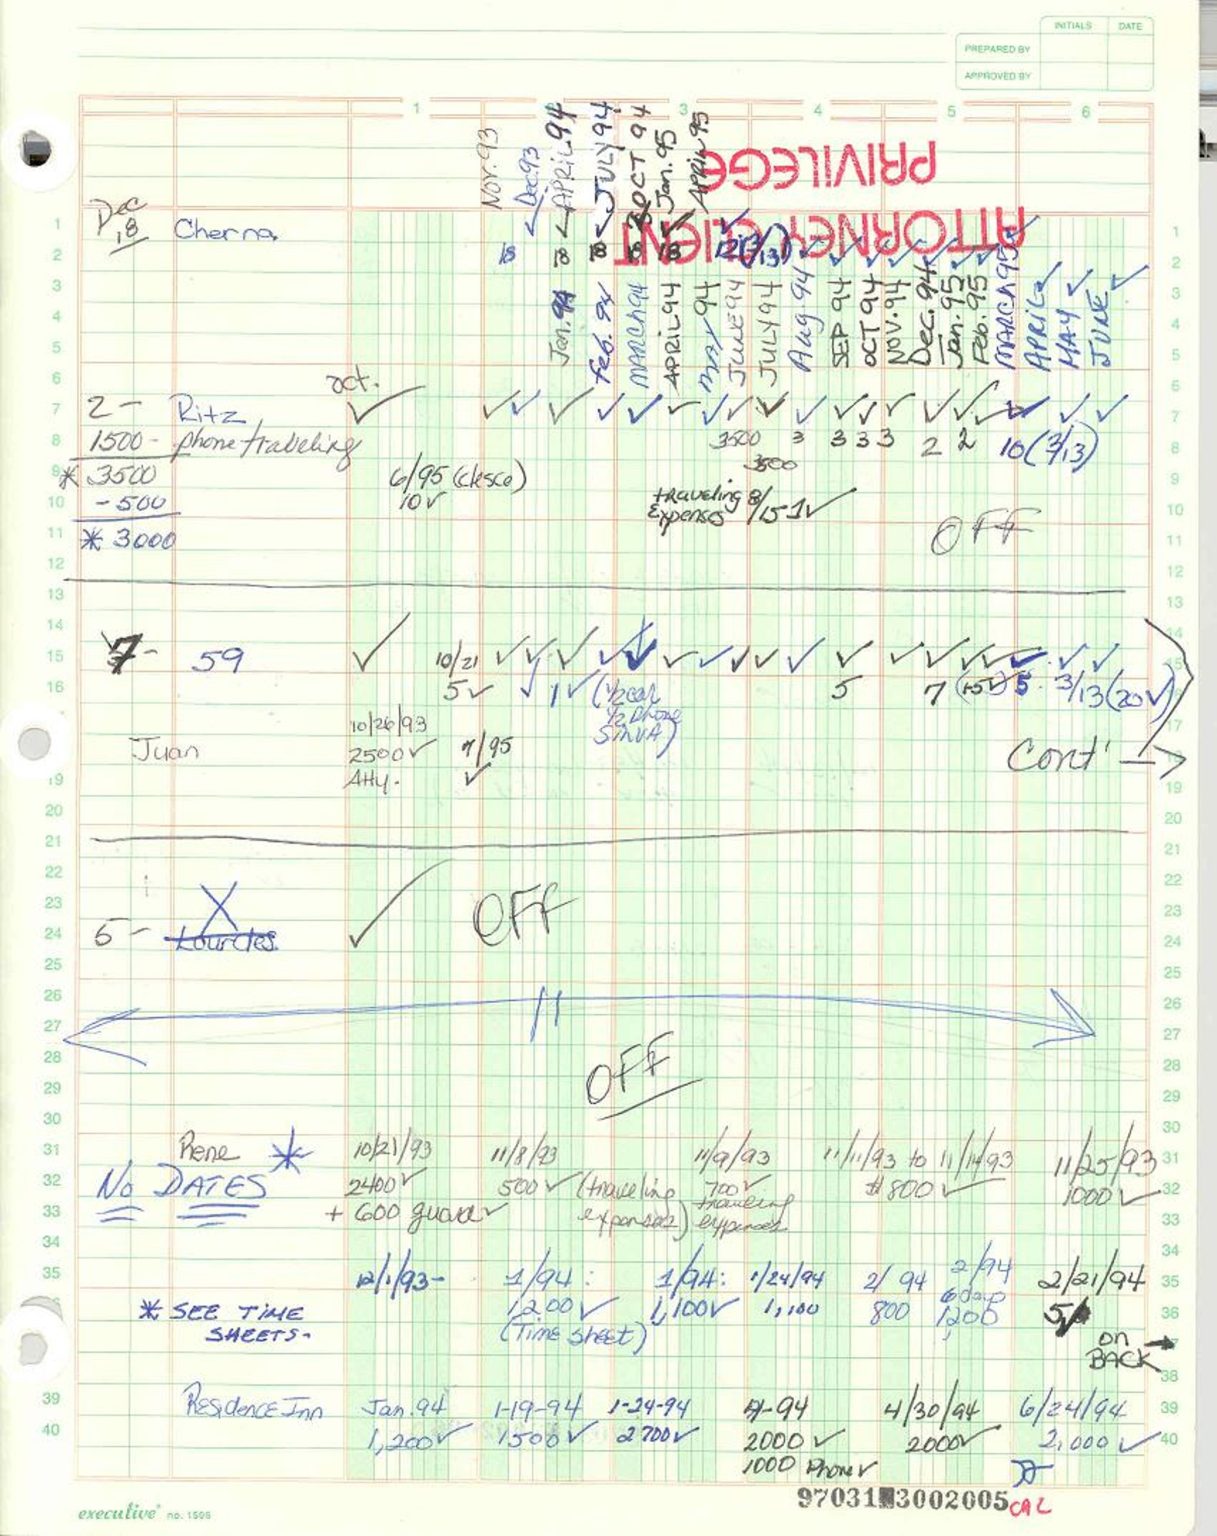 INITIALS DATE
PREPARED BY
APPROVED BY
1 2 3 4 5 6
Nov. 93
Dec. 93
APRIL 94
JULY 94
OCT 94
Jan. 95
APRIL 95
ATTORNEY/CLIENT
PRIVILEGE
Dec
18
Cherna
18 18 18 18 18 12 (3/13)
Jan. 94
Feb. 94
MARCH 94
APRIL 94
MAY 94
JUNE 94
JULY 94
Aug. 94
SEP 94
OCT 94
NOV. 94
Dec. 94
Jan. 95
Feb. 95
MARCH 95
APRIL
MAY
JUNE
oct.
2 - Ritz
1500 - phone traveling
3500 3 3 3 3 2 2 10 (3/13)
* 3500
3500
6/95 (clesco)
10
- 500
traveling 8/15 - 1
Expenses
* 3000
OFF
7 - 59
10/21
5 1 (1/2 car
1/2 phone
SinVA)
5 7 5 3/13 (20)
Juan
10/26/93
2500
Atty.
7/95
Cont'
5 - Lourdes
OFF
OFF
Rene *
NO DATES
10/21/93
2400
+ 600 guard
11/8/93
500 (traveling
expenses)
11/9/93
700
traveling
expenses
11/11/93 to 11/14/93
$800
11/25/93
1000
* SEE TIME
SHEETS -
12/1/93 -
1/94:
1,200
(Time Sheet)
1/94:
1,100
1/24/94
1,100
2/94
800
2/94
6 days
1200
2/21/94
5
on
BACK
Residence Inn
Jan. 94
1,200
1-19-94
1500
1-24-94
2700
4-94
2000
1000 Phone
4/30/94
2000
6/24/94
2,000
executive no. 1506
97031 3002005
CAL
1
2
3
4
5
6
7
8
9
10
11
12
13
14
15
16
17
19
20
21
22
23
24
25
26
27
28
29
30
31
32
33
34
35
36
38
39
40